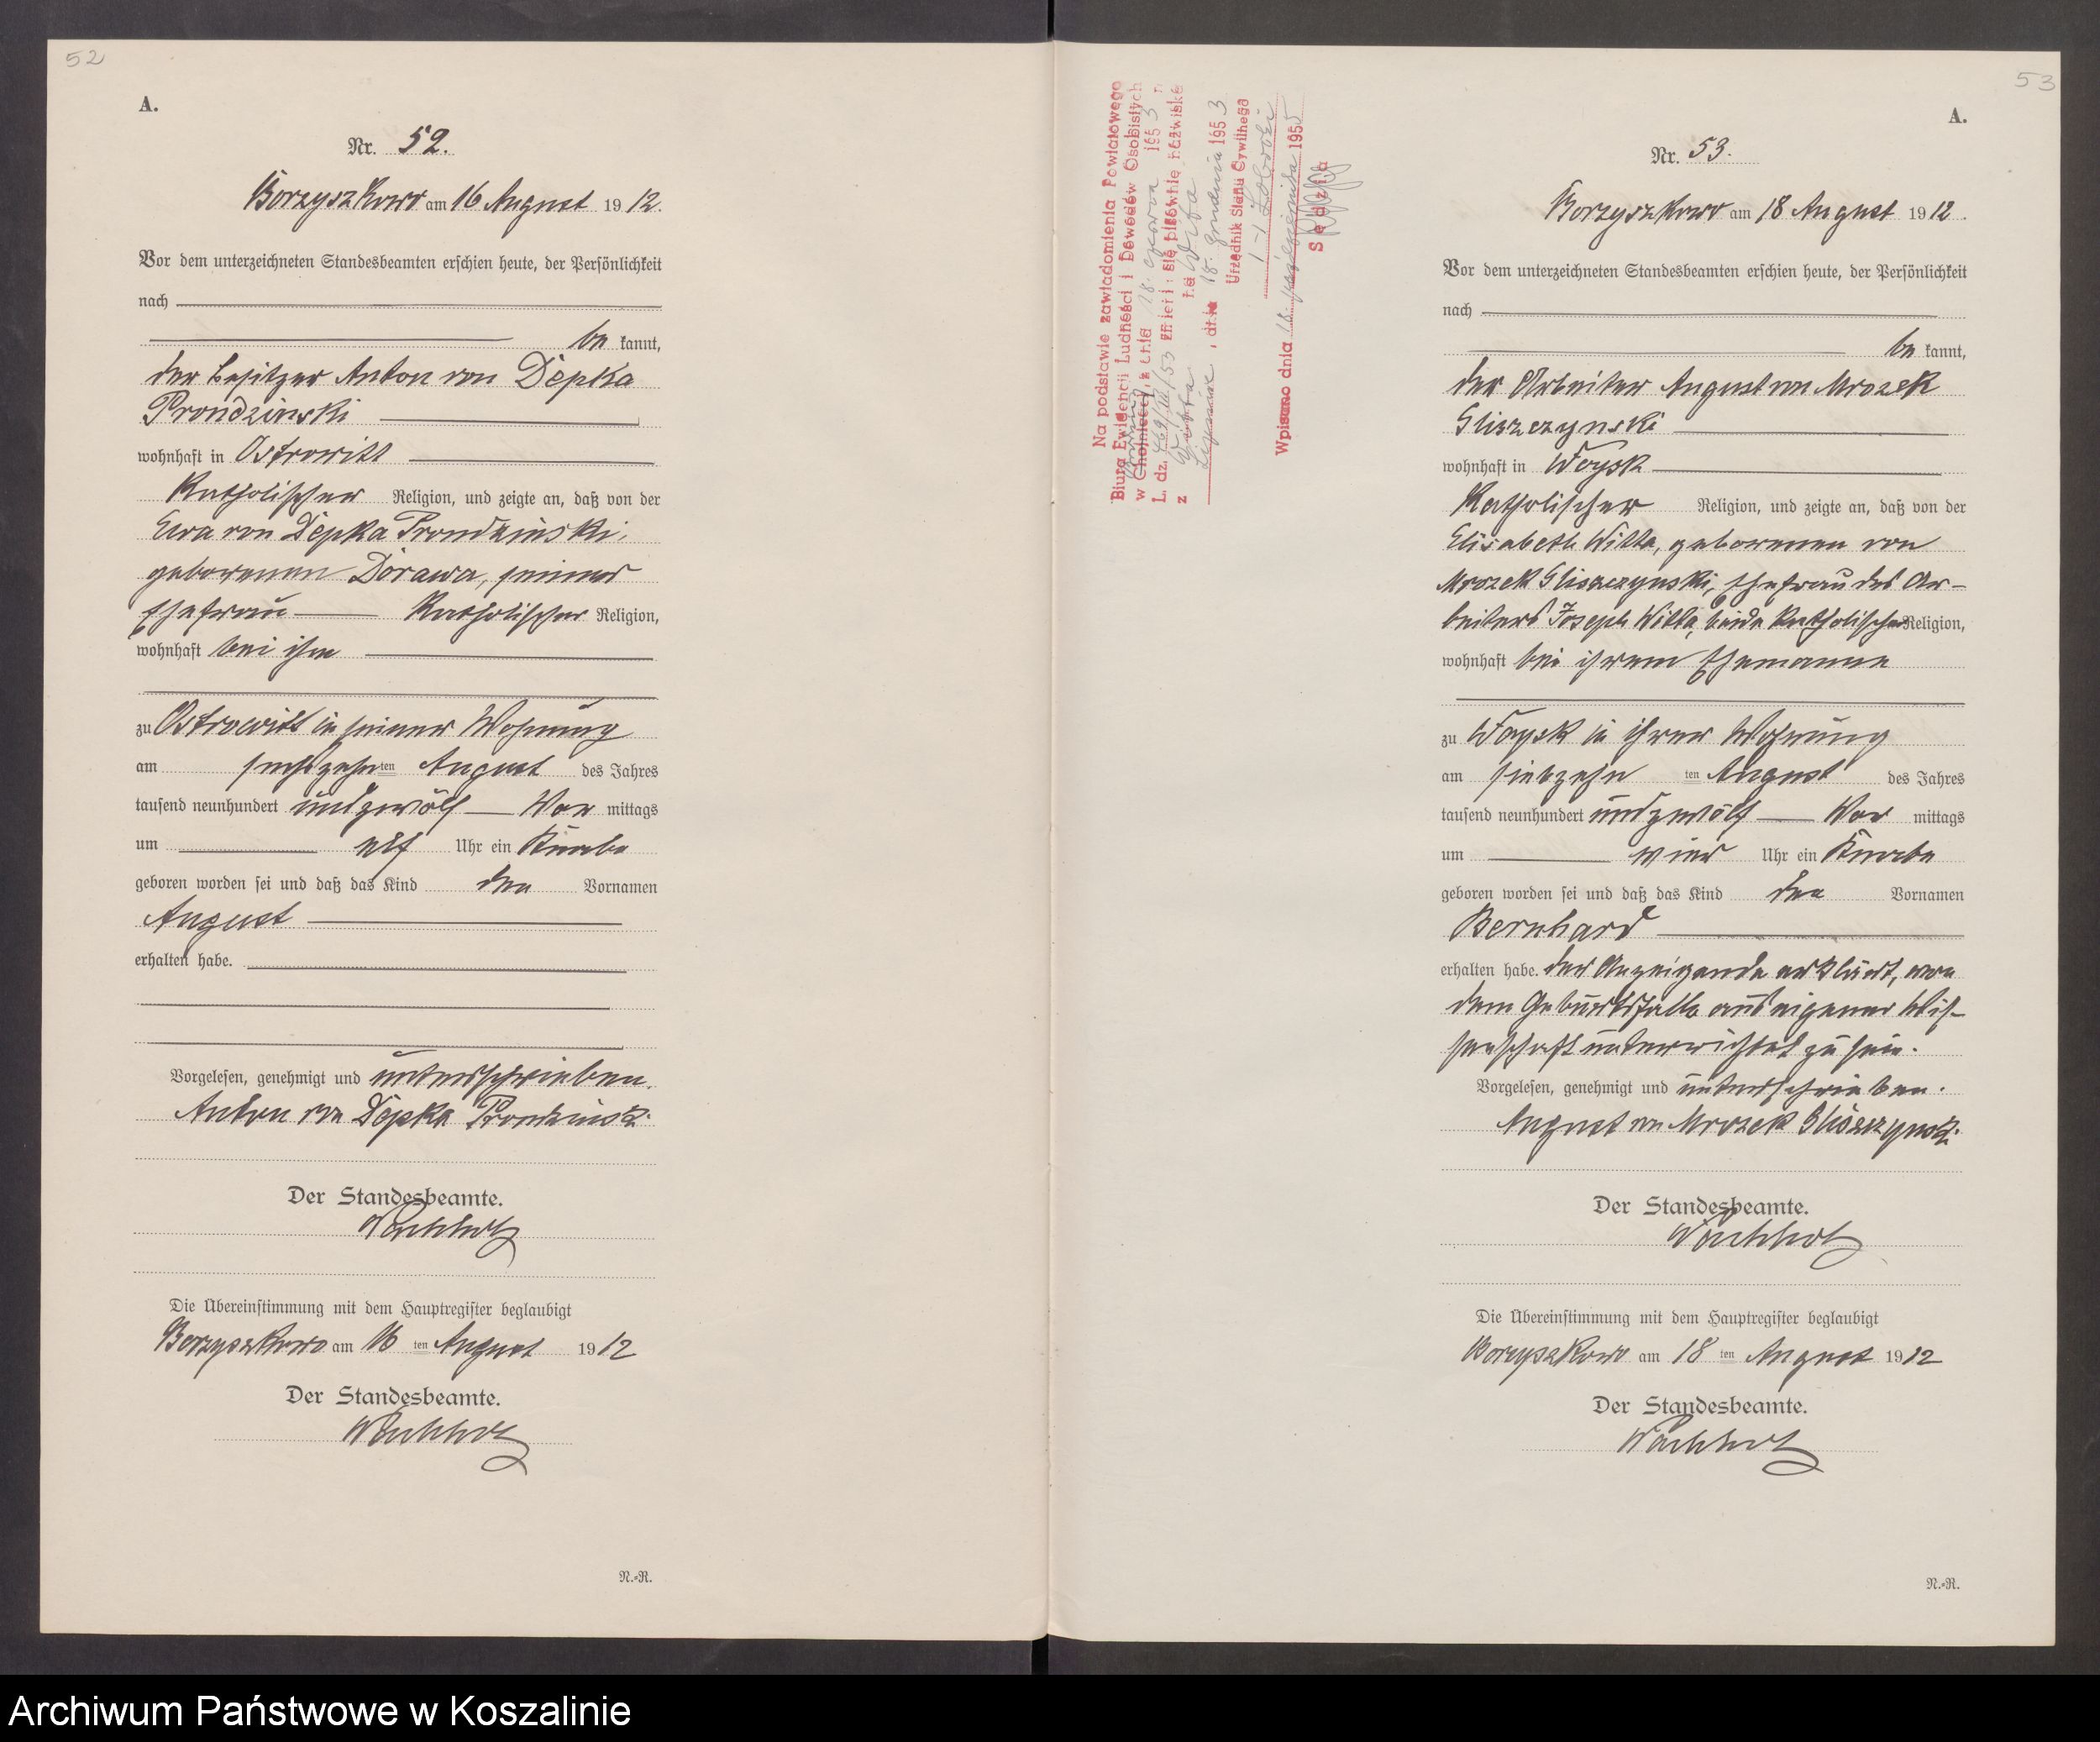 52
A.
Nr. 52.
Borzyszkowo am 16 August 1912.
Vor dem unterzeichneten Standesbeamten erschien heute, der Persönlichkeit
nach
be kannt,
der Besitzer Anton von Depka
Prondzinski
wohnhaft in Ostrowitt
katholischer Religion, und zeigte an, daß von der
Eva von Depka Prondzinski,
geborenen Dorawa, seiner
Ehefrau katholischer Religion,
wohnhaft bei ihm
zu Ostrowitt in seiner Wohnung
am sechszehnten August des Jahres
tausend neunhundert undzwölf Vor mittags
um elf Uhr ein Knabe
geboren worden sei und daß das Kind den Vornamen
August
erhalten habe.
Vorgelesen, genehmigt und unterschrieben.
Anton von Depka Prondzinski
Der Standesbeamte.
Wachholz
Die Übereinstimmung mit dem Hauptregister beglaubigt
Borzyszkowo am 16 ten August 1912
Der Standesbeamte.
Wachholz
N.-R.
53
Na podstawie zawiadomienia Powiatowego
Biura Ewidencji Ludności i Dowodów Osobistych
w Chojnicach, z dnia 18. czerwca 1953 r
L. dz. zmienia się pisownię nazwiska
z Witta na Wita
, dnia 18. grudnia 1953
Urzędnik Stanu Cywilnego
Wpisano dnia 18. października 1955
Sędzia
A.
Nr. 53.
Borzyszkowo am 18 August 1912.
Vor dem unterzeichneten Standesbeamten erschien heute, der Persönlichkeit
nach
be kannt,
der Arbeiter August von Mrozek
Gliszczynski
wohnhaft in Woysk
katholischer Religion, und zeigte an, daß von der
Elisabeth Witta, geborenen von
Mrozek Gliszczynski, Ehefrau des Ar-
beiters Joseph Witta, beide katholischer Religion,
wohnhaft bei ihrem Ehemanne
zu Woysk in ihrer Wohnung
am siebzehn ten August des Jahres
tausend neunhundert undzwölf Vor mittags
um vier Uhr ein Knabe
geboren worden sei und daß das Kind den Vornamen
Bernhard
erhalten habe. Der Anzeigende erklärt, von
dem Geburtsfalle aus eigener Wis-
senschaft unterrichtet zu sein.
Vorgelesen, genehmigt und unterschrieben.
August von Mrozek Gliszczynski
Der Standesbeamte.
Wachholz
Die Übereinstimmung mit dem Hauptregister beglaubigt
Borzyszkowo am 18 ten August 1912
Der Standesbeamte.
Wachholz
N.-R.
Archiwum Państwowe w Koszalinie